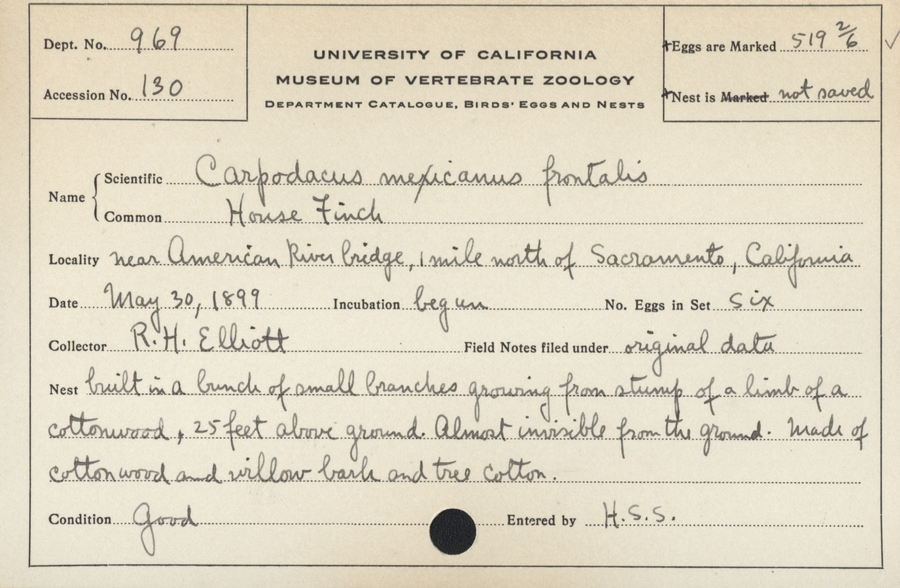 Dept. No. 969
Accession No. 130
UNIVERSITY OF CALIFORNIA
MUSEUM OF VERTEBRATE ZOOLOGY
DEPARTMENT CATALOGUE, BIRDS' EGGS AND NESTS
Eggs are Marked 519 2/6 ✓
Nest is Marked not saved
Name { Scientific Carpodacus mexicanus frontalis
Common House Finch
Locality near American River bridge, 1 mile north of Sacramento, California
Date May 30, 1899 Incubation begun No. Eggs in Set six
Collector R. H. Elliott Field Notes filed under original data
Nest built in a bunch of small branches growing from stump of a limb of a
cottonwood, 25 feet above ground. Almost invisible from the ground. Made of
cottonwood and willow bark and tree cotton.
Condition Good Entered by H.S.S.